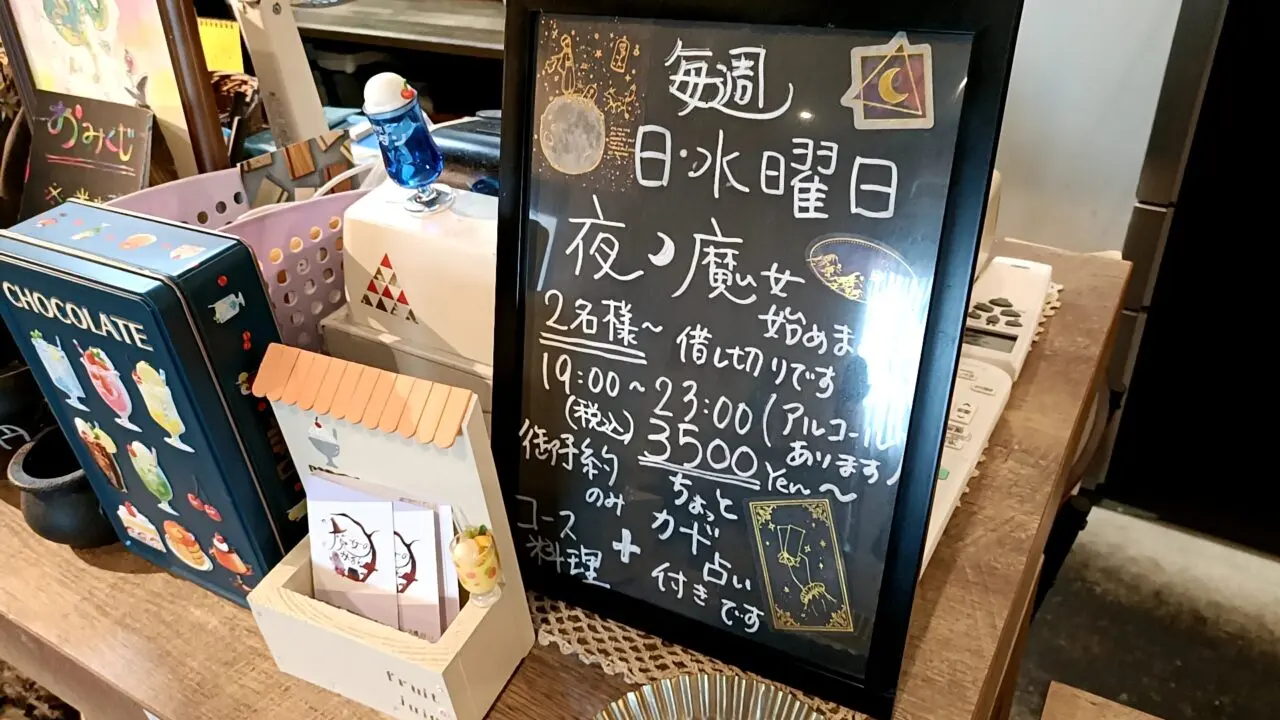 毎週
日・水曜日
夜の魔女
始めま
2名様~ 借し切りです
19:00~23:00(アルコール
あります)
(税込) 3500 Yen~
御予約
のみ
コース
料理
+
ちょっと
カード
占い
付きです
おみくじ
CHOCOLATE
fruit